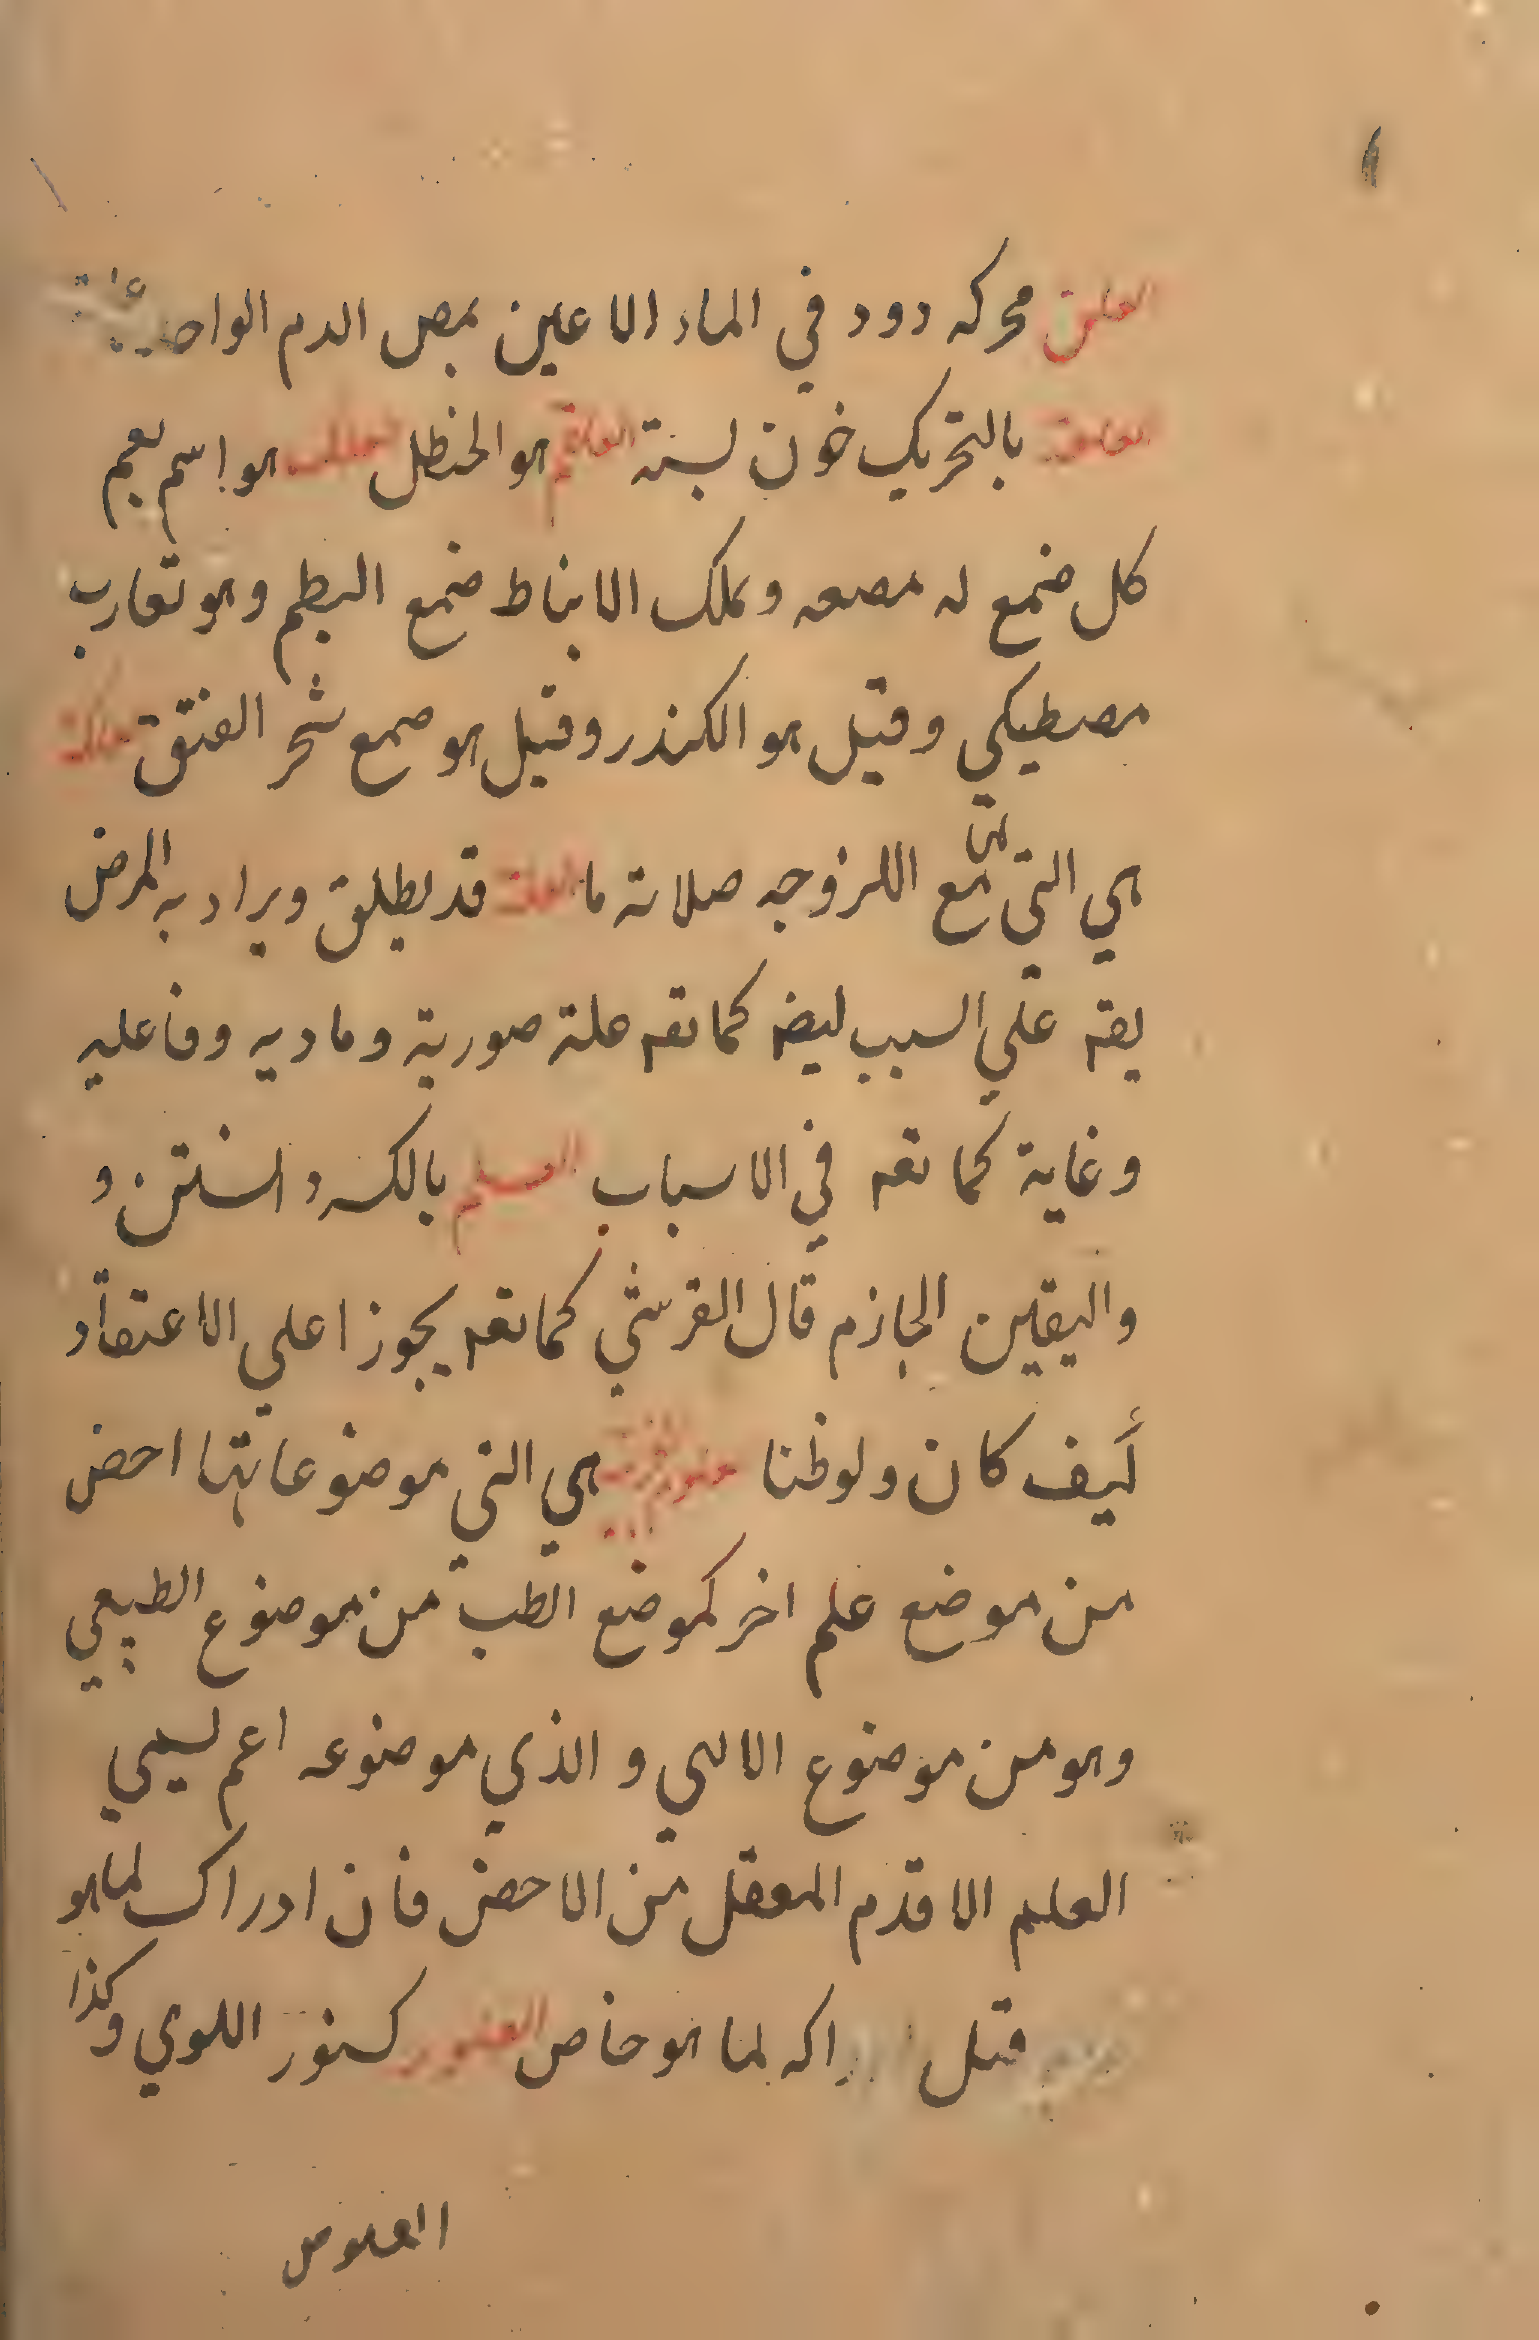 العلق محركه دود في الماء الاعين بمص الدم الواحدة
العلقة بالتحريك خون بستة العلقم هو الحنظل العلك هو اسم يعم
كل ضمع له مصعه وعلك الانباط ضمع البطم وهو تقارب
مصطيكي وقيل هو الكندر وقيل هو صمع شجر الفتق علكة
هي التي مع اللزوجه صلابة ما العلة قد يطلق ويراد به المرض
يقه علي السبب ايضه كما تقه علة صورية وماديه وفاعليه
وغاية كما تقه في الاسباب العلم بالكسر دانستن و
واليقين الجازم قال القرشي كما تقه يجوز اعلي الاعتقاد
كيف كان ولوظنا هي التي موضوعاتها احض
من موضع علم اخر كموضع الطب من موضوع الطبيعي
وهو من موضوع الالهي والذي موضوعه اعم ليسمي
العلم الاقدم المعقل من الاحض فان ادراك لما هو
قبل ادراكه لما هو خاص العلور كسنور اللوي وكذا
العلوص